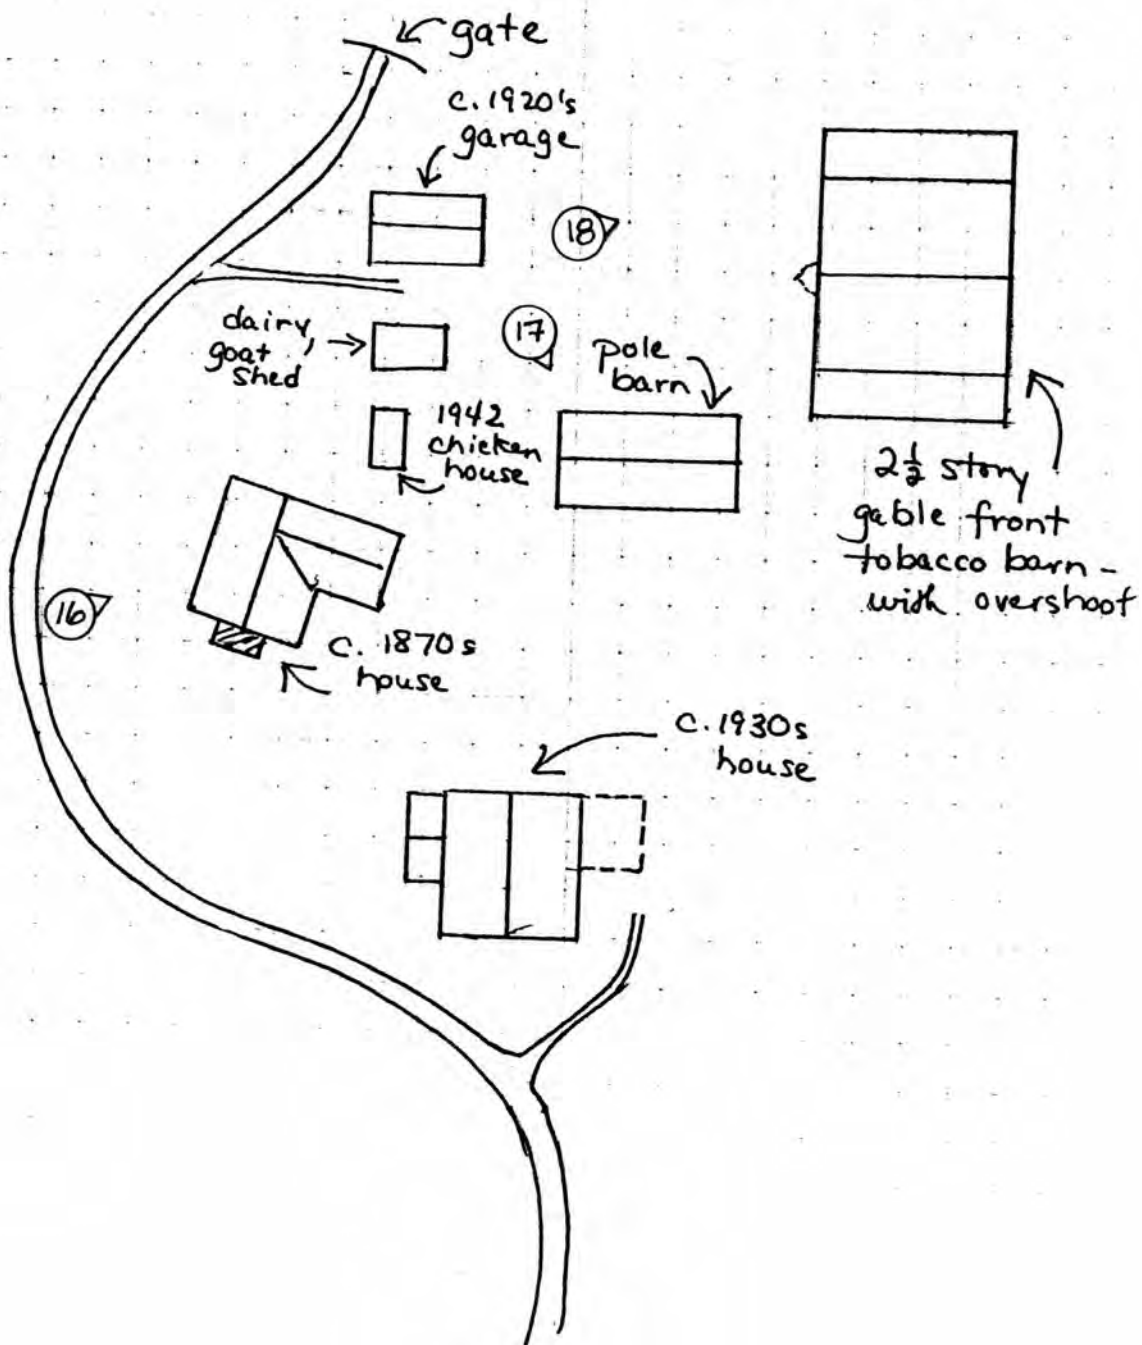 gate
c. 1920's
garage
18
17
dairy,
goat
shed
pole
barn
1942
chicken
house
2 1/2 story
gable front
tobacco barn -
with overshoot
16
c. 1870s
house
c. 1930s
house